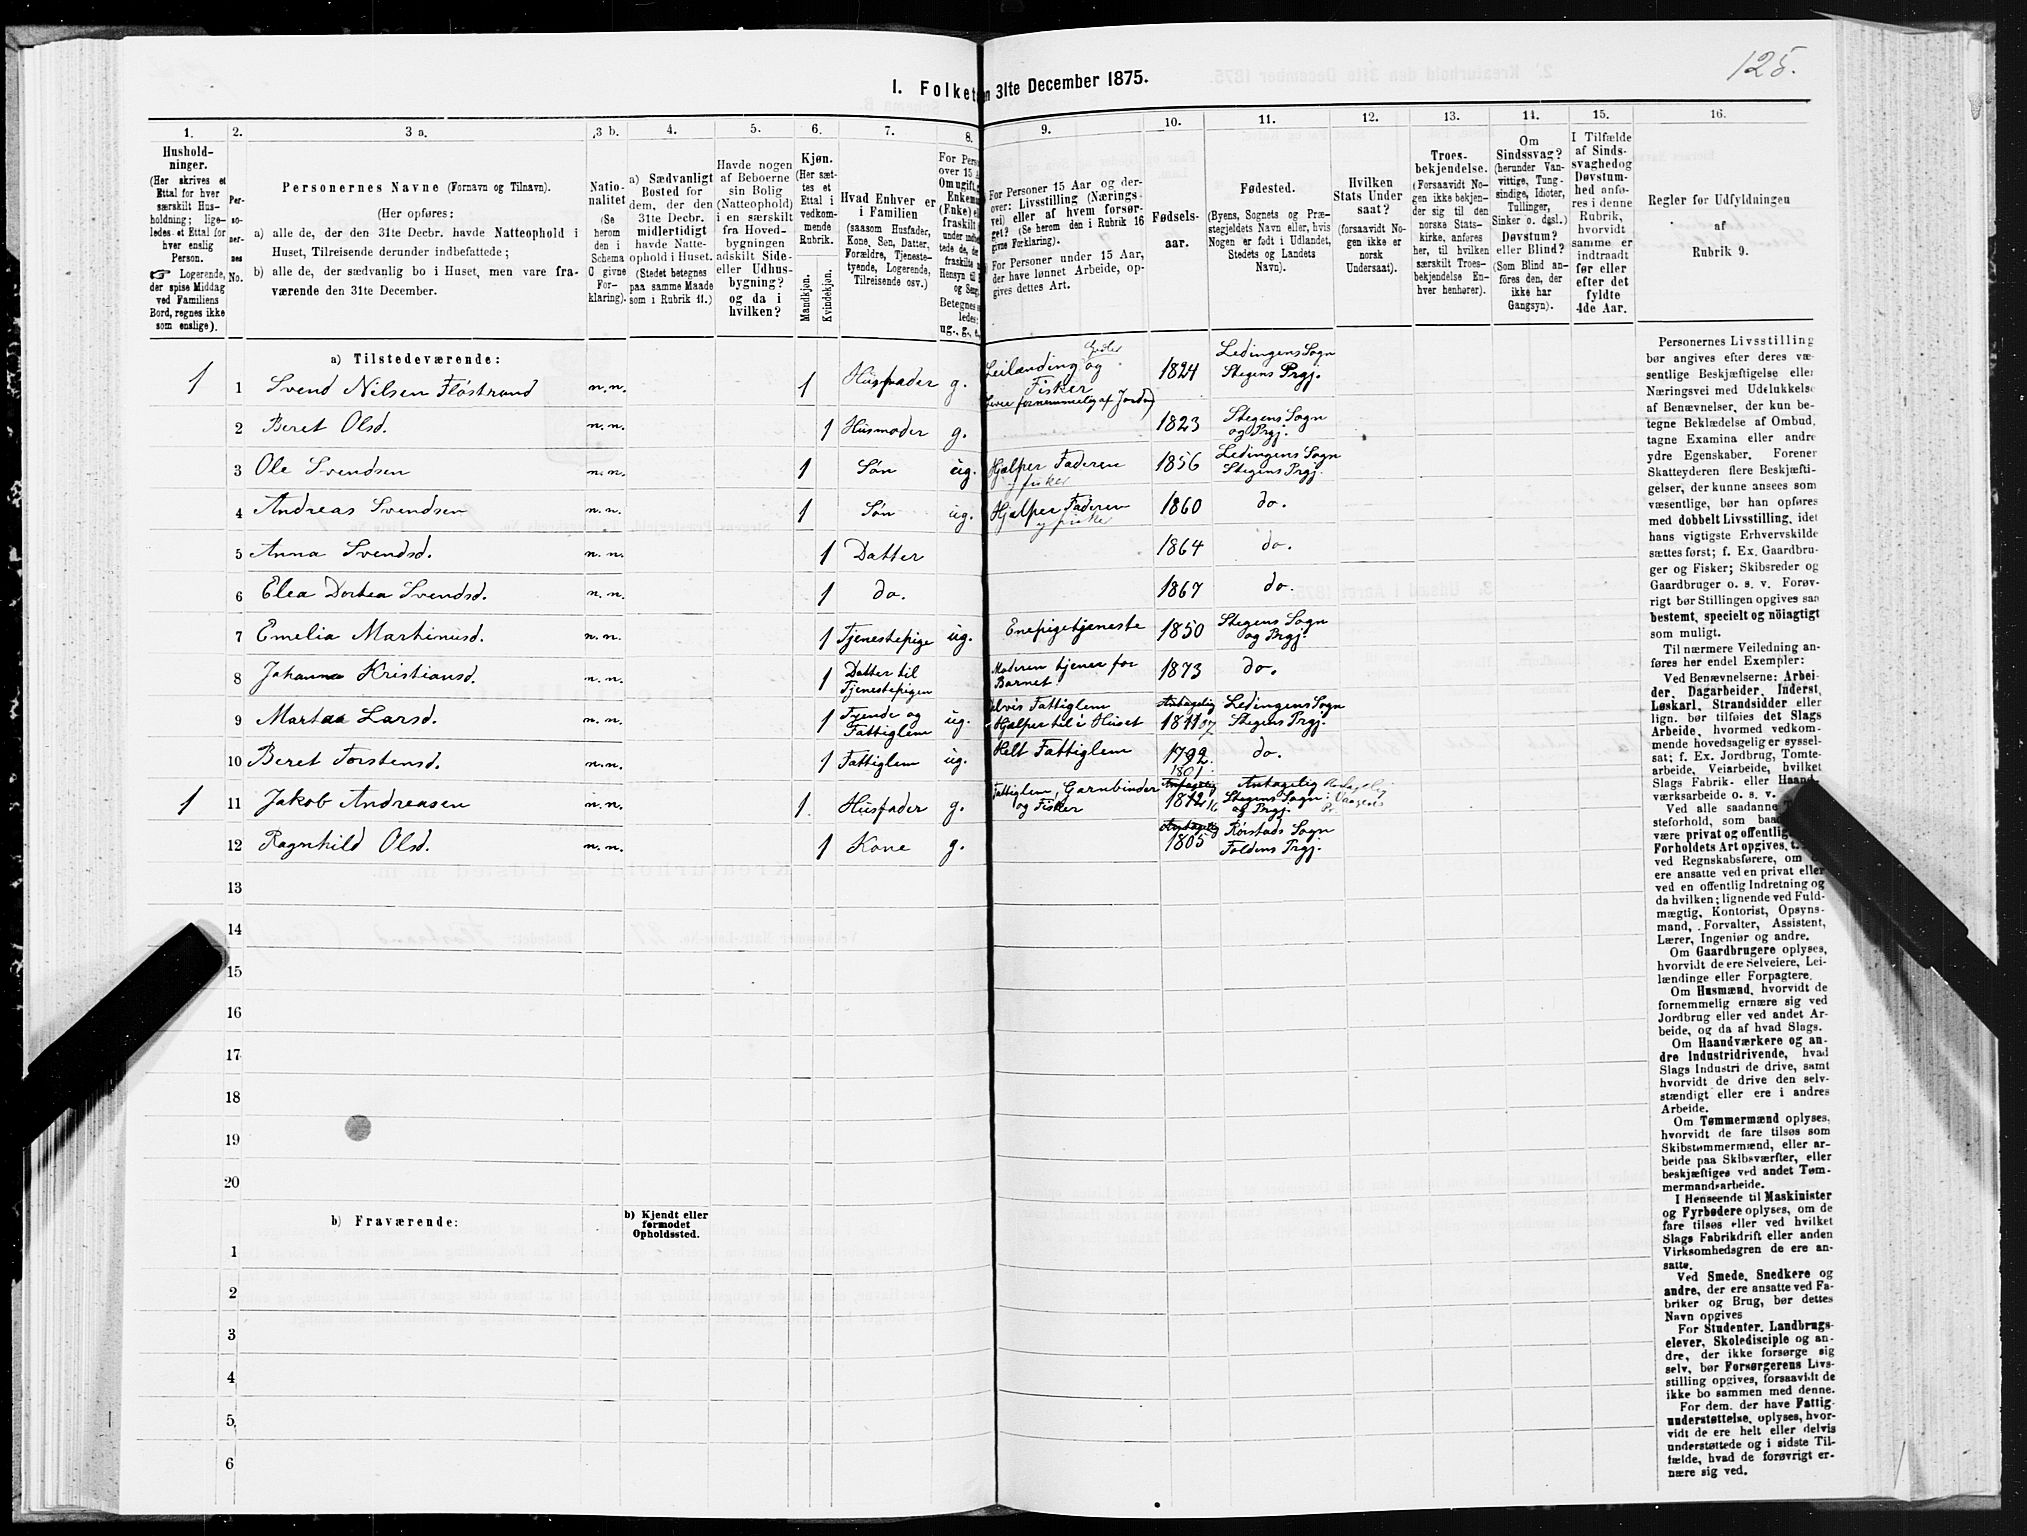 125.
I. Folket
n 31te December 1875.
1.
2.
3 a.
3 b.
4.
5.
6.
7.
8.
9.
10.
11.
12.
13.
14.
15.
16.
Hushold-
ninger.
(Her skrives et
Ettal for hver
særskilt Hus-
holdning; lige-
ledes et Ettal for
hver enslig
Person.
☞ Logerende,
der spise Middag
ved Familiens
Bord, regnes ikke
som enslige).
Per-
so-
ner-
nes
No.
Personernes Navne (Fornavn og Tilnavn).
(Her opføres:
a) alle de, der den 31te Decbr. havde Natteophold i
Huset, Tilreisende derunder indbefattede;
b) alle de, der sædvanlig bo i Huset, men vare fra-
værende den 31te December.
Natio-
nalitet
(Se
herom
den i
Schema
C givne
For-
klaring).
a) Sædvanligt
Bosted for
dem, der den
31te Decbr.
midlertidigt
havde Natte-
ophold i Huset.
(Stedet betegnes
paa samme Maade
som i Rubrik 11.)
Havde nogen
af Beboerne
sin Bolig
(Natteophold)
i en særskilt
fra Hoved-
bygningen
adskilt Side-
eller Udhus-
bygning?
og da i
hvilken?
Kjøn.
(Her sæt-
tes et
Ettal i
vedkom-
mende
Rubrik.
Mandkjøn.
Kvindekjøn.
Hvad Enhver er
i Familien
(saasom Husfader,
Kone, Søn, Datter,
Forældre, Tjeneste-
tyende, Logerende,
Tilreisende osv.)
For Pers
over 15
Omugift,
Enkema
(Enke) el
fraskilt
under indb
tede de, de
fraskilte
Hensyn til
og Seng
Betegnes
ledes:
ug., g., e.
For Personer 15 Aar og der-
over: Livsstilling (Nærings-
vei) eller af hvem forsør-
get? (Se herom den i Rubrik 16
givne Forklaring).
For Personer under 15 Aar,
der have lønnet Arbeide, op-
gives dettes Art.
Fødsels-
aar.
Fødested.
(Byens, Sognets og Præ-
stegjeldets Navn eller, hvis
Nogen er født i Udlandet,
Stedets og Landets
Navn).
Hvilken
Stats Under
saat?
(forsaavidt No-
gen ikke er
norsk
Undersaat).
Troes-
bekjendelse.
(Forsaavidt No-
gen ikke bekjen-
der sig til den
norske Stats-
kirke, anføres
her, til hvilken
særskilt Troes-
bekjendelse En-
hver henhører).
Om
Sindssvag?
(herunder Van-
vittige, Tung-
sindige, Idioter,
Tullinger,
Sinker o. desl.)
Døvstum?
eller Blind?
(Som Blind an-
føres den, der
ikke har
Gangsyn).
I Tilfælde
af Sinds-
svaghedog
Døvstum-
hed anfø-
res i denne
Rubrik,
hvorvidt
samme er
indtraadt
før eller
efter det
fyldte
4de Aar.
Regler for Udfyldningen
af
Rubrik 9.
a) Tilstedeværende:
1 1 Svend Nilsen Flöstrand n.n. 1 Husfader g. Leilanding og Fisker 1824 Ledingens Sogn Stegens Prgj.
2 Beret Olsd. n.n. 1 Husmoder g. 1823 Stegens Sogn og Prgj.
3 Ole Svendsen n.n. 1 Søn ug. Hjælper Faderen og fisker 1856 Ledingens Sogn Stegens Prgj.
4 Andreas Svendsen n.n. 1 Søn ug. Hjælper Faderen og fisker 1860 do.
5 Anna Svendsd. n.n. 1 Datter 1864 do.
6 Elea Dortea Svendsd. n.n. 1 do. 1867 do.
7 Emelia Martinusd. n.n. 1 Tjenestepige ug. Enepigetjeneste 1850 Stegens Sogn og Prgj.
8 Johanna Kristiansd. n.n. 1 Datter til Tjenestepigen Moderen tjener for Barnet 1873 do.
9 Martha Larsd. n.n. 1 Tyende og Fattiglem ug. Delvis Fattiglem Hjælper til i Huset Antagelig 1811 Ledingens Sogn Stegens Prgj.
10 Beret Torstensd. n.n. 1 Fattiglem ug. Helt Fattiglem 1792. 1801. do.
1 11 Jakob Andreasen n.n. 1. Husfader g. Fattiglem, Garnbinder og Fisker Antagelig 1812 16 Antagelig Stegens Sogn og Prgj. Antagelig Vaagens Pr.
12 Ragnhild Olsd. n.n. 1 Kone g. Antagelig 1805 Rörstads Sogn Foldens Prgj.
13
14
15
16
17
18
19
20
b) Fraværende:
b) Kjendt eller
formodet
Opholdssted.
1
2
3
4
5
6
Personernes Livsstilling
bør angives efter deres væ-
sentlige Beskjæftigelse eller
Næringsvei med Udelukkelse
af Benævnelser, der kun be-
tegne Beklædelse af Ombud,
tagne Examina eller andre
ydre Egenskaber. Forener
Skatteyderen flere Beskjæfti-
gelser, der kunne ansees som
væsentlige, bør han opføres
med dobbelt Livsstilling, idet
hans vigtigste Erhvervskilde
sættes først; f. Ex. Gaardbru-
ger og Fisker; Skibsreder og
Gaardbruger o. s. v. Forøv-
rigt bør Stillingen opgives saa
bestemt, specielt og nöiagtigt
som muligt.
Til nærmere Veiledning an-
føres her endel Exempler:
Ved Benævnelserne: Arbei-
der, Dagarbeider, Inderst,
Løskarl, Strandsidder eller
lign. bør tilføies det Slags
Arbeide, hvormed vedkom-
mende hovedsagelig er syssel-
sat; f. Ex. Jordbrug, Tomte-
arbeide, Veiarbeide, hvilket
Slags Fabrik- eller Haand-
værksarbeide o. s. v.
Ved alle saadanne
steforhold, som baa
være privat og offentlig
Forholdets Art opgives, t.
ved Regnskabsførere, om
ere ansatte ved en privat eller
ved en offentlig Indretning og
da hvilken; lignende ved Fuld-
mægtig, Kontorist, Opsyns-
mand, Forvalter, Assistent,
Lærer, Ingeniør og andre.
Om Gaardbrugere oplyses,
hvorvidt de ere Selveiere, Lei-
lændinge eller Forpagtere.
Om Husmænd, hvorvidt de
fornemmelig ernære sig ved
Jordbrug eller ved andet Ar-
beide, og da af hvad Slags.
Om Haandværkere og an-
dre Industridrivende, hvad
Slags Industri de drive, samt
hvorvidt de drive den selv-
stændigt eller ere i andres
Arbeide.
Om Tømmermænd oplyses,
hvorvidt de fare tilsøs som
Skibstømmermænd, eller ar-
beide paa Skibsværfter, eller
beskjæftiges ved andet Tøm-
mermandsarbeide.
I Henseende til Maskinister
og Fyrbødere oplyses, om de
fare tilsøs eller ved hvilket
Slags Fabrikdrift eller anden
Virksomhedsgren de ere an-
satte.
Ved Smede, Snedkere og
andre, der ere ansatte ved Fa-
briker og Brug, bør dettes
Navn opgives
For Studenter, Landbrugs-
elever, Skoledisciple og an-
dre, der ikke forsørge sig
selv, bør Forsørgerens Livs-
stilling opgives, forsaavidt de
ikke bo sammen med denne.
For dem, der have Fattig-
understøttelse, oplyses, hvor-
vidt de ere helt eller delvis
understøttede og i sidste Til-
fælde, hvad de forøvrigt er-
nære sig ved.